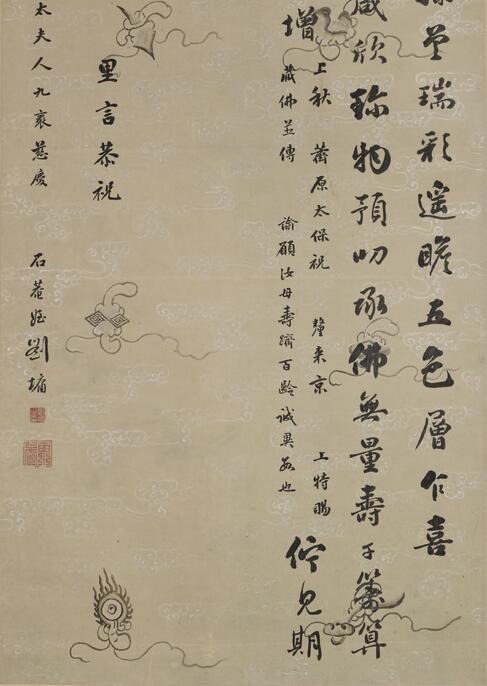 堂瑞彩遥瞻五色層乍喜
咸欣珎物預叨承佛無量壽子籌算
增
上秋
蕃原太保祝
釐来京
上特賜
藏佛並傳
諭願汝母壽躋百齡誠異数也
佇見期
里言恭祝
太夫人九袠慈慶
石菴姪劉墉